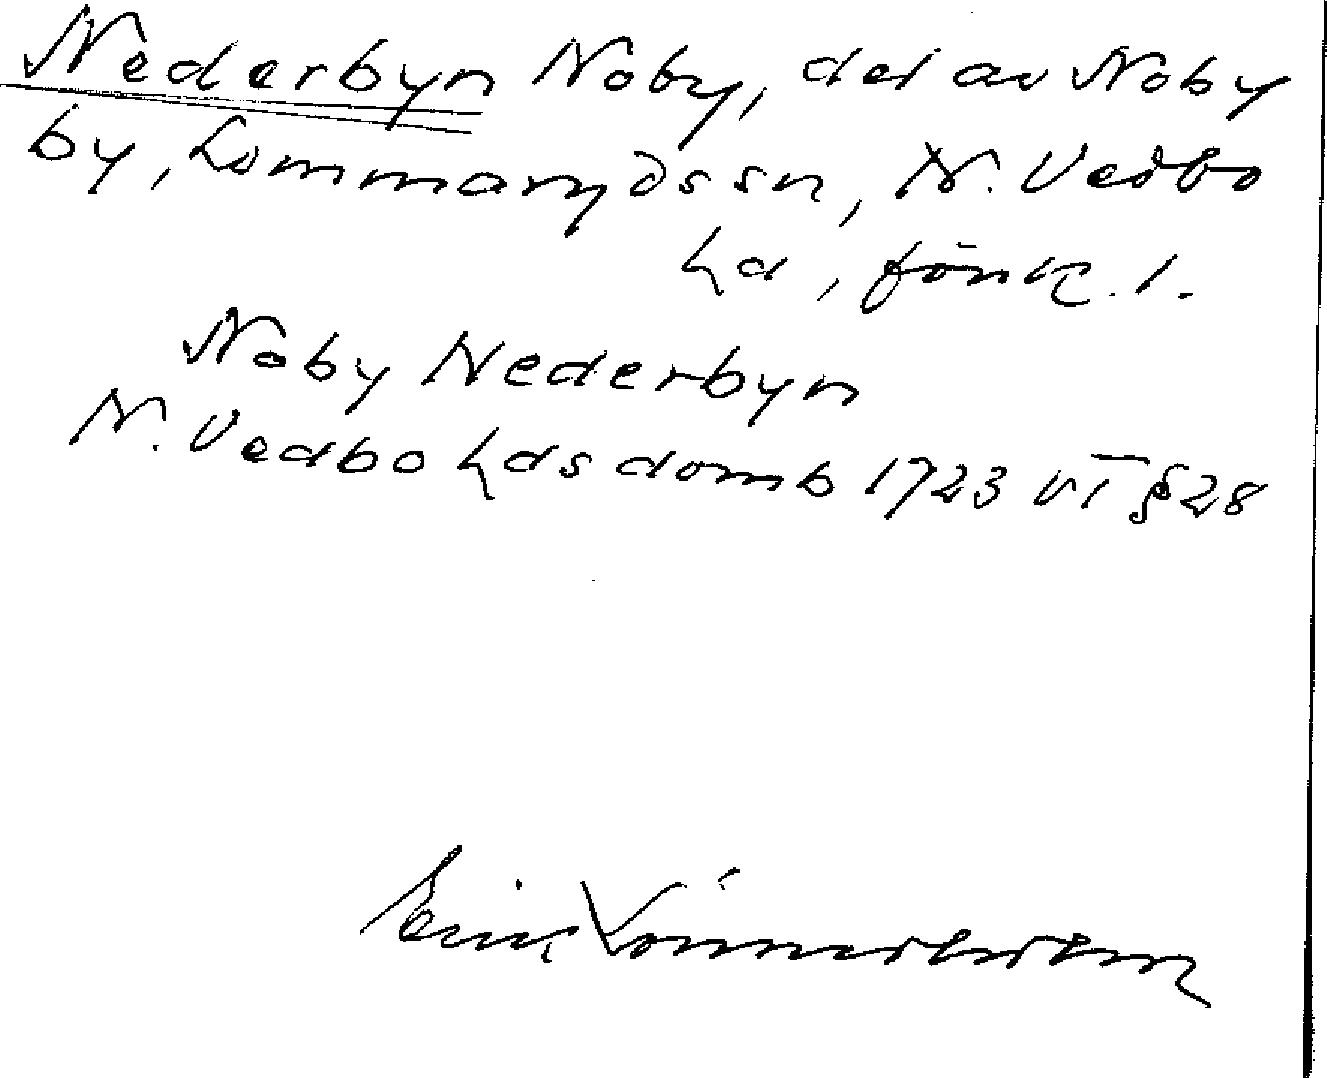 Nederbyn Noby, del av Noby
by, Lommaryds sn, N. Vedbo
hd, Jönk. l.
Noby Nederbyn
N. Vedbo hds domb 1723 VI § 28